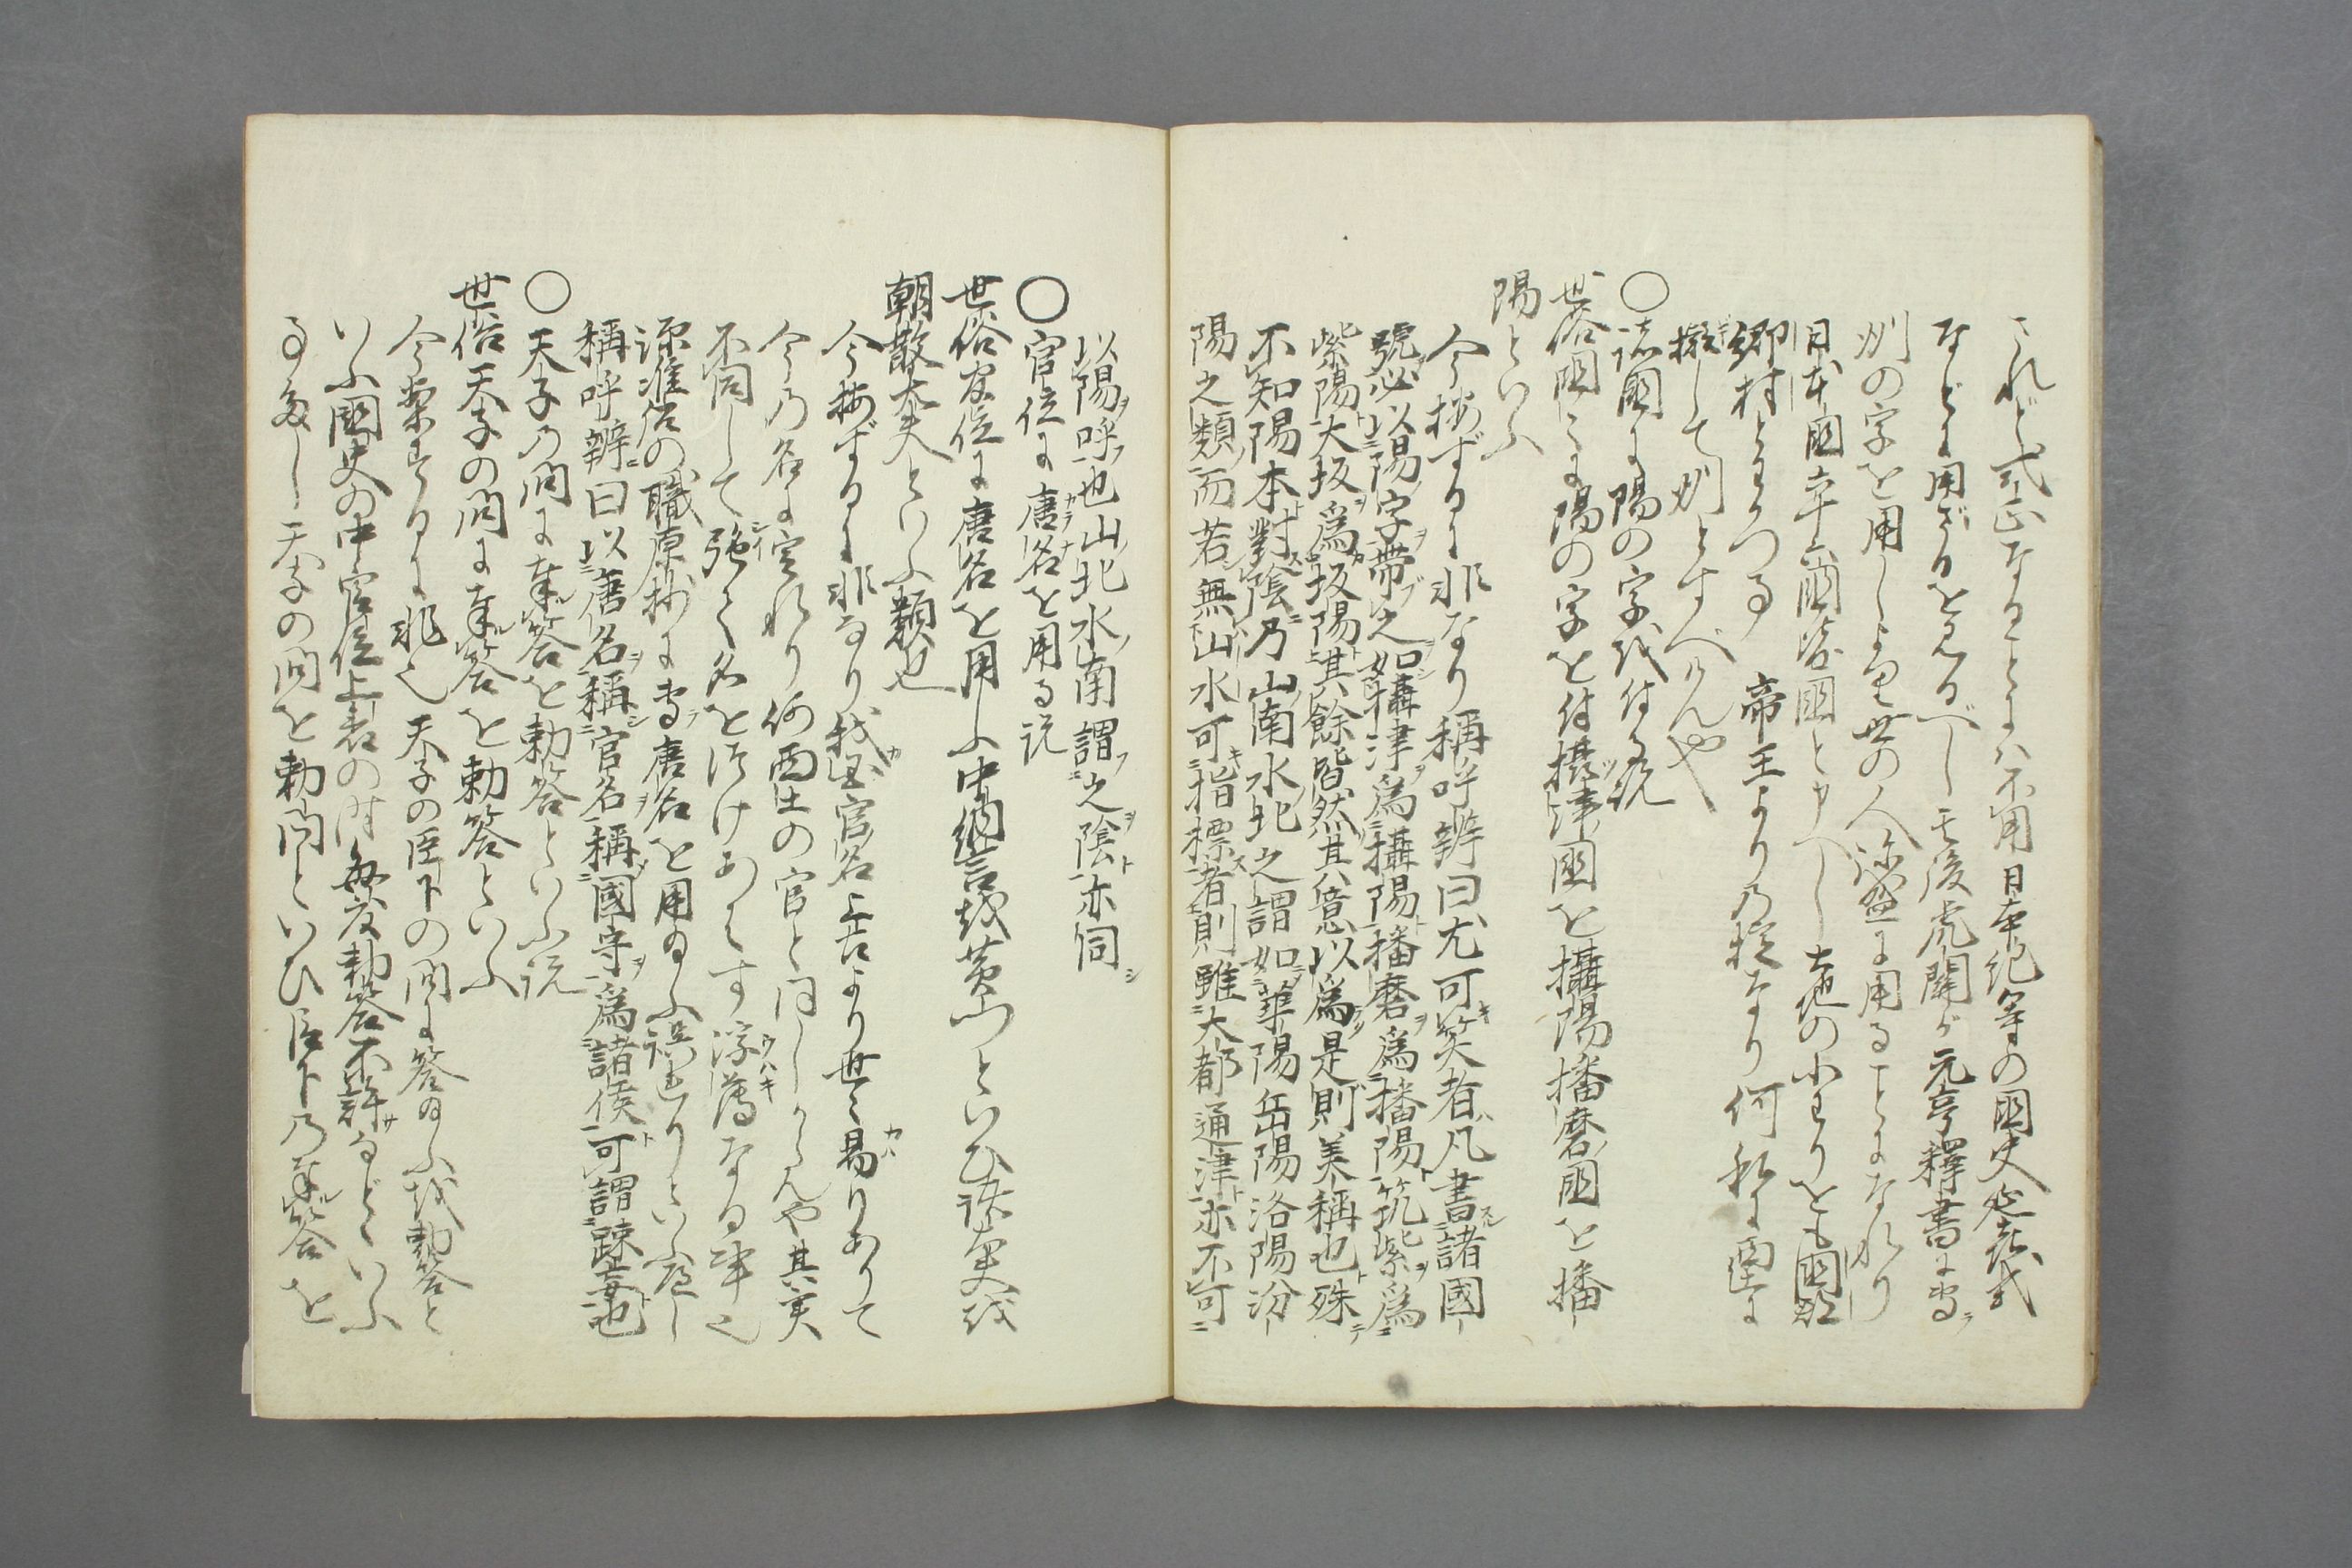 されど式正なることには不用日本紀等の国史延喜式
などに用ざるを見るべし其後虎関が元亨釈書に専ラ
州の字を用しより世の人添盛に用ることになれり
日本国六十六箇国と申べし土地の小わりをも国郡
郷村とわかつる　帝王よりの掟なり何ぞ私に西土に
擬して州とすべけんや
〇諸国に陽の字を付る説
世俗国々に陽の字を付摂津国を攝陽播磨国を播
陽といふ
今按ずるに非なり稱呼辨曰尤可笑者凡書諸國
號必以陽字帯之如攝津為攝陽播磨為播陽筑紫為
紫陽大坂為坂陽其餘皆然其意以為是則美稱也殊
不知陽本對陰乃山南水北之謂如華陽岳陽洛陽汾
陽之類而若無山水可指標者則雖大都通津亦不可
以陽呼也山北水南謂之陰亦同
〇官位に唐名を用る説
世俗官位に唐名を用ふ中納言を黄門といひ諸大夫を
朝散大夫といふ類也
今按ずるに非なり我国官名上古より世々易りありて
今の名に定れり何西土の官と同しからんや其実
不同して強く名をつけあへす浮薄なる事也
源准后の職原抄に専唐名を用ゐふ誤なりといふべし
稱呼辨曰以唐名稱官名稱國守為諸侯可謂踈妄也
〇天子の問に奉答を勅答といふ説
世俗天子の問に奉答を勅答といふ
今案ずるに非也天子の臣下の問に答ゐふを勅答と
いふ國史の中官位上表の時毎度勅答不許などゝいふ
事多し天子の問を勅問といひ臣下の奉答を